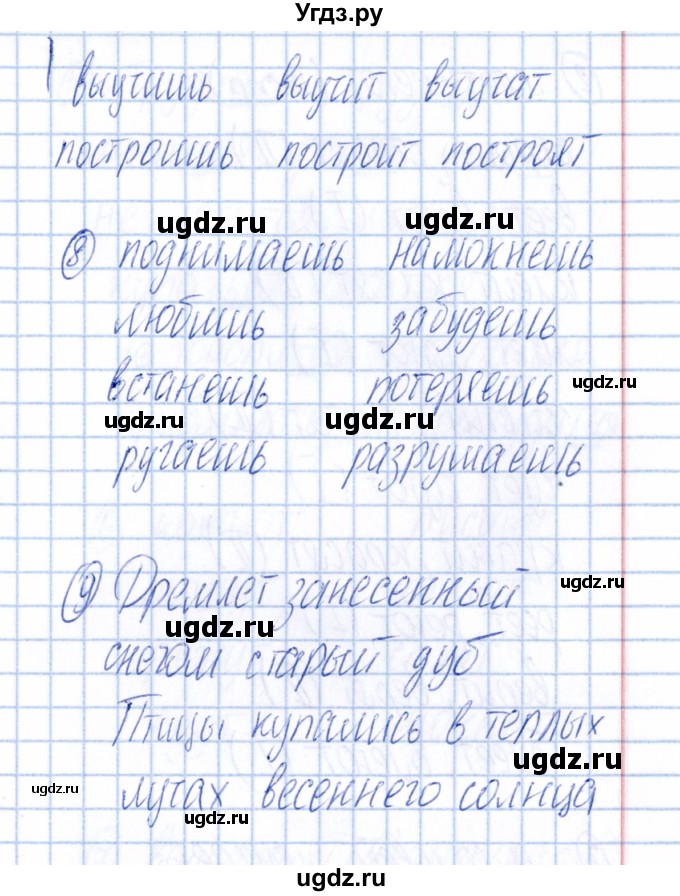 Угдз.ру
выучишь выучит выучат
построишь построит построят
ugdz.ru ugdz.ru
8 поднимаешь намокнешь
любишь забудешь
встанешь потеряешь ugdz.ru
ugdz.ru ugdz.ru
ругаешь разрушаешь
9 Дремлет занесенный ugdz.ru
ugdz.ru
снегом старый дуб
Птицы купались в теплых
ugdz.ru
ugdz.ru лучах весеннего солнца
ugdz.ru
ugdz.ru